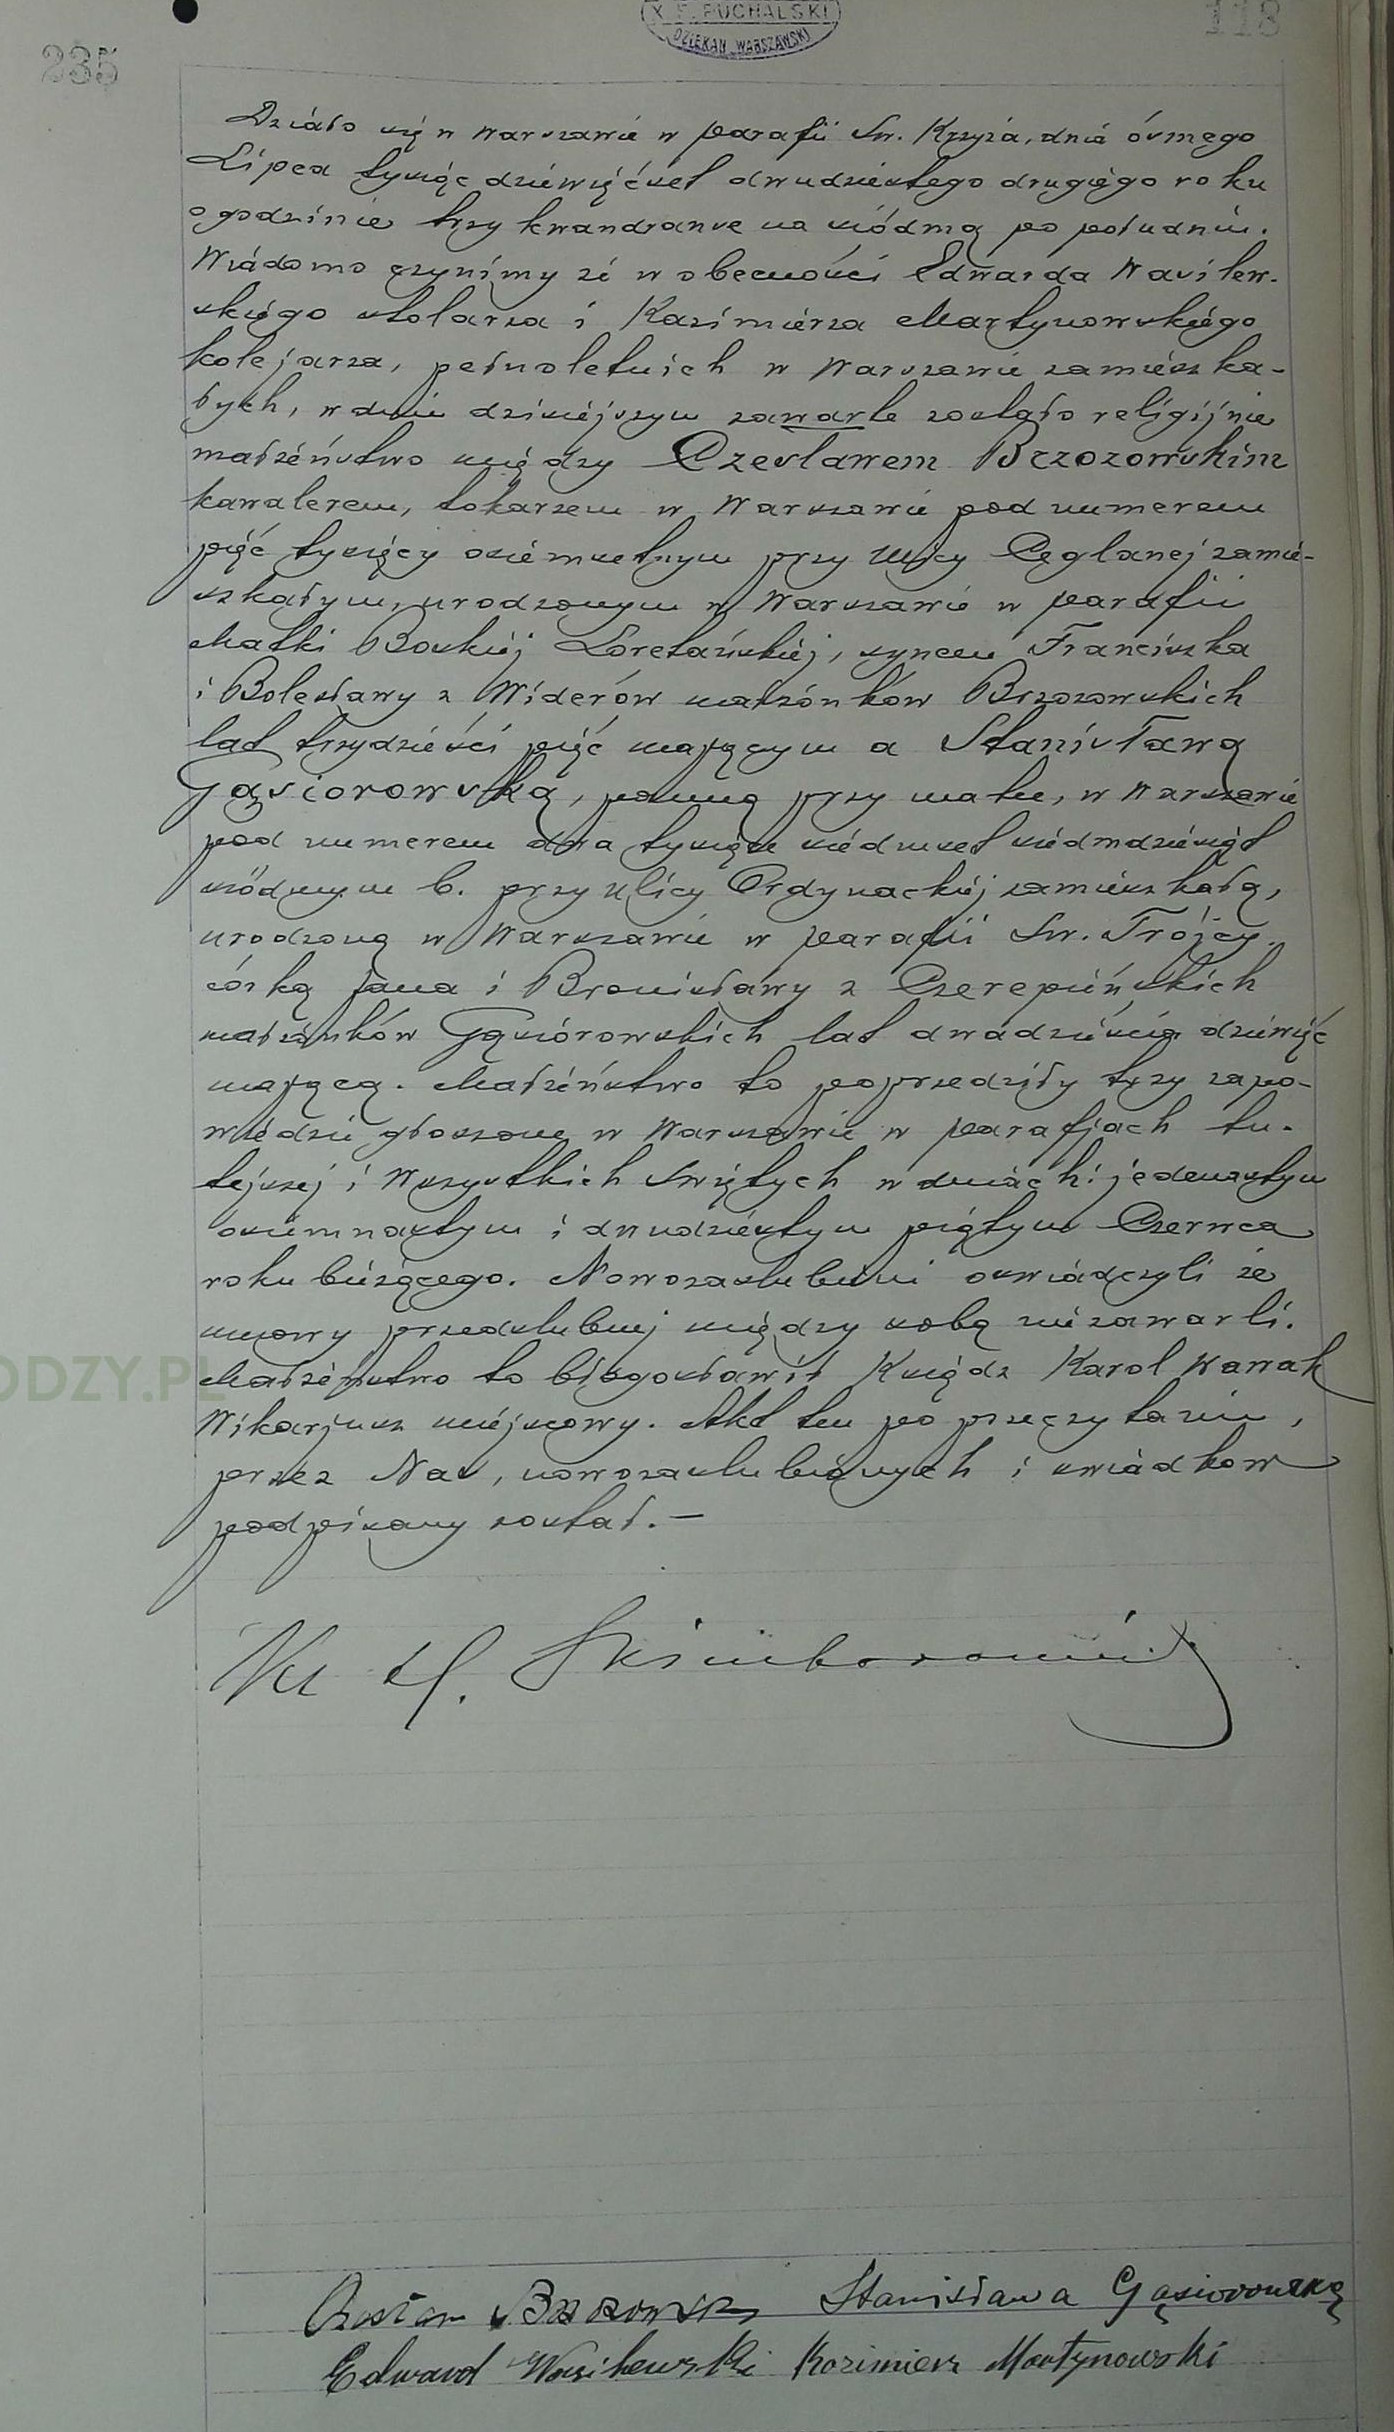 X. F. PUCHALSKI
DZIEKAN WARSZAWSKI
118
235
Działo się w Warszawie w parafii Św. Krzyża, dnia ósmego
Lipca tysiąc dziewięćset dwudziestego drugiego roku
o godzinie trzy kwandranse na siódmą po południu.
Wiadomo czynimy że w obecności Edwarda Wasilew-
skiego stolarza i Kazimierza Martynowskiego
kolejarza, pełnoletnich w Warszawie zamieszka-
łych, w dniu dzisiejszym zawarte zostało religijnie
małżeństwo między Czesławem Brzozowskim
kawalerem, tokarzem w Warszawie pod numerem
pięć tysięcy osiemsetnym przy ulicy Ceglanej zamie-
szkałym, urodzonym w Warszawie w parafii
Matki Boskiej Loretańskiej, synem Franciszka
i Bolesławy z Widerów małżonków Brzozowskich
lat trzydzieści pięć mającym a Stanisławą
Gąsiorowską, panną przy matce, w Warszawie
pod numerem dwa tysiące siedmset siedmdziesiąt
siódmym b. przy ulicy Ordynackiej zamieszkałą,
urodzoną w Warszawie w parafii Św. Trójcy
córką Jana i Bronisławy z Czerepińskich
małżonków Gąsiorowskich lat dwadzieścia dziewięć
mającą. Małżeństwo to poprzedziły trzy zapo-
wiedzie głoszone w Warszawie w parafjach tu-
tejszej i Wszystkich Świętych w dniach: jedenastym
osiemnastym i dwudziestym piątym Czerwca
roku bieżącego. Nowozaślubieni oświadczyli że
umowy przedślubnej między sobą nie zawarli.
Małżeństwo to błogosławił Ksiądz Karol Wawak
Wikarjusz miejscowy. Akt ten po przeczytaniu,
przez Nas, nowozaślubionych i świadków
podpisany został. —
Czesław Brzozowski Stanisława Gąsiorowską
Edward Wasilewski Kazimierz Martynowski
ODZY.PL